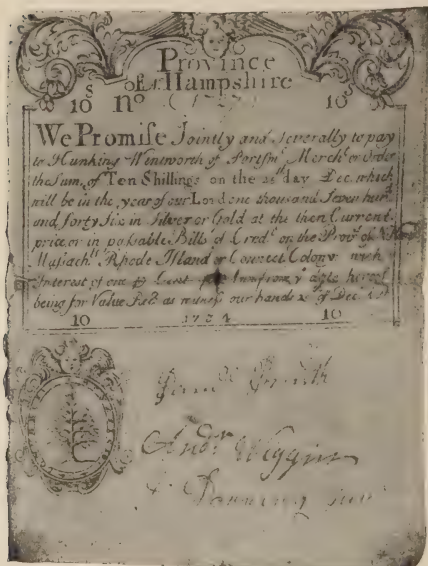 Province
of N. Hampshire
10s No 10s
We Promise Jointly and Severally to pay
to Hunking Wentworth of Portsm Merch or Order
the Sum of Ten Shillings on the 25th day Dec. which
will be in the year of our Lord one thousand Seven hund
and forty Six in Silver or Gold at the then Current
price or in passable Bills of Cred on the Prov of N
Massach Rhode Island or Connect Colony with
Interest of one p Cent p annum from y date hereof
being for Value as witness our hands of Dec
10 1734 10
Smith
Andr Wiggin
Jun